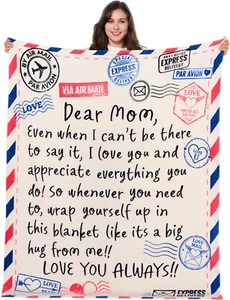 BY AIR MAIL
SPECIAL DELIVERY
EXPRESS
DELIVERY
PAR AVION
LOVE
VIA AIR MAIL
Dear Mom,
Even when I can't be there
to say it, I love you and
appreciate everything you
do! So whenever you need
to, wrap yourself up in
this blanket (like its a big
hug from me!!
LOVE YOU ALWAYS!!
LOVE
EXPRESS